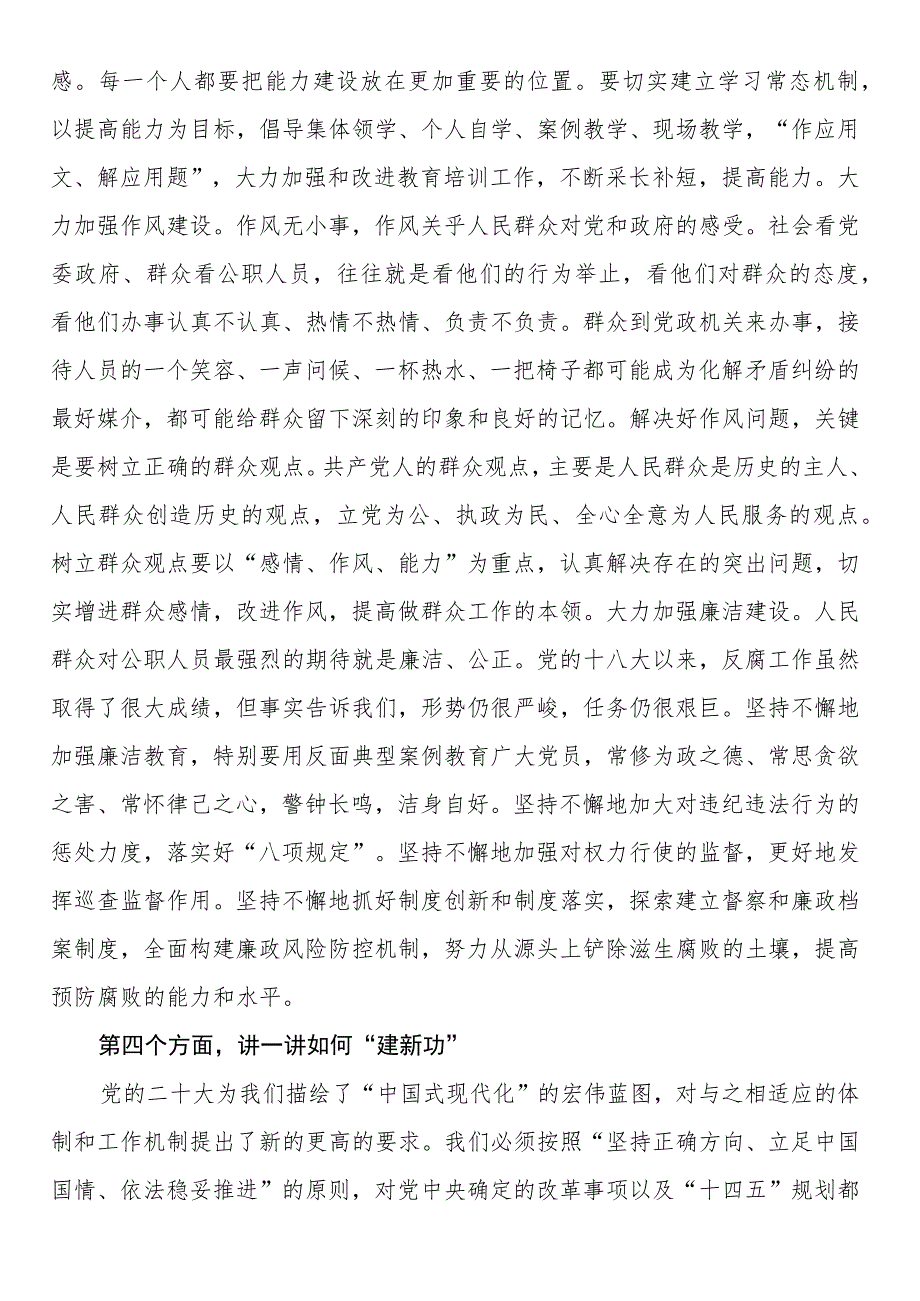 感。每一个人都要把能力建设放在更加重要的位置。要切实建立学习常态机制，
以提高能力为目标，倡导集体领学、个人自学、案例教学、现场教学，“作应用
文、解应用题”，大力加强和改进教育培训工作，不断采长补短，提高能力。大
力加强作风建设。作风无小事，作风关乎人民群众对党和政府的感受。社会看党
委政府、群众看公职人员，往往就是看他们的行为举止，看他们对群众的态度，
看他们办事认真不认真、热情不热情、负责不负责。群众到党政机关来办事，接
待人员的一个笑容、一声问候、一杯热水、一把椅子都可能成为化解矛盾纠纷的
最好媒介，都可能给群众留下深刻的印象和良好的记忆。解决好作风问题，关键
是要树立正确的群众观点。共产党人的群众观点，主要是人民群众是历史的主人、
人民群众创造历史的观点，立党为公、执政为民、全心全意为人民服务的观点。
树立群众观点要以“感情、作风、能力”为重点，认真解决存在的突出问题，切
实增进群众感情，改进作风，提高做群众工作的本领。大力加强廉洁建设。人民
群众对公职人员最强烈的期待就是廉洁、公正。党的十八大以来，反腐工作虽然
取得了很大成绩，但事实告诉我们，形势仍很严峻，任务仍很艰巨。坚持不懈地
加强廉洁教育，特别要用反面典型案例教育广大党员，常修为政之德、常思贪欲
之害、常怀律己之心，警钟长鸣，洁身自好。坚持不懈地加大对违纪违法行为的
惩处力度，落实好“八项规定”。坚持不懈地加强对权力行使的监督，更好地发
挥巡查监督作用。坚持不懈地抓好制度创新和制度落实，探索建立督察和廉政档
案制度，全面构建廉政风险防控机制，努力从源头上铲除滋生腐败的土壤，提高
预防腐败的能力和水平。
第四个方面，讲一讲如何“建新功”
党的二十大为我们描绘了“中国式现代化”的宏伟蓝图，对与之相适应的体
制和工作机制提出了新的更高的要求。我们必须按照“坚持正确方向、立足中国
国情、依法稳妥推进”的原则，对党中央确定的改革事项以及“十四五”规划都